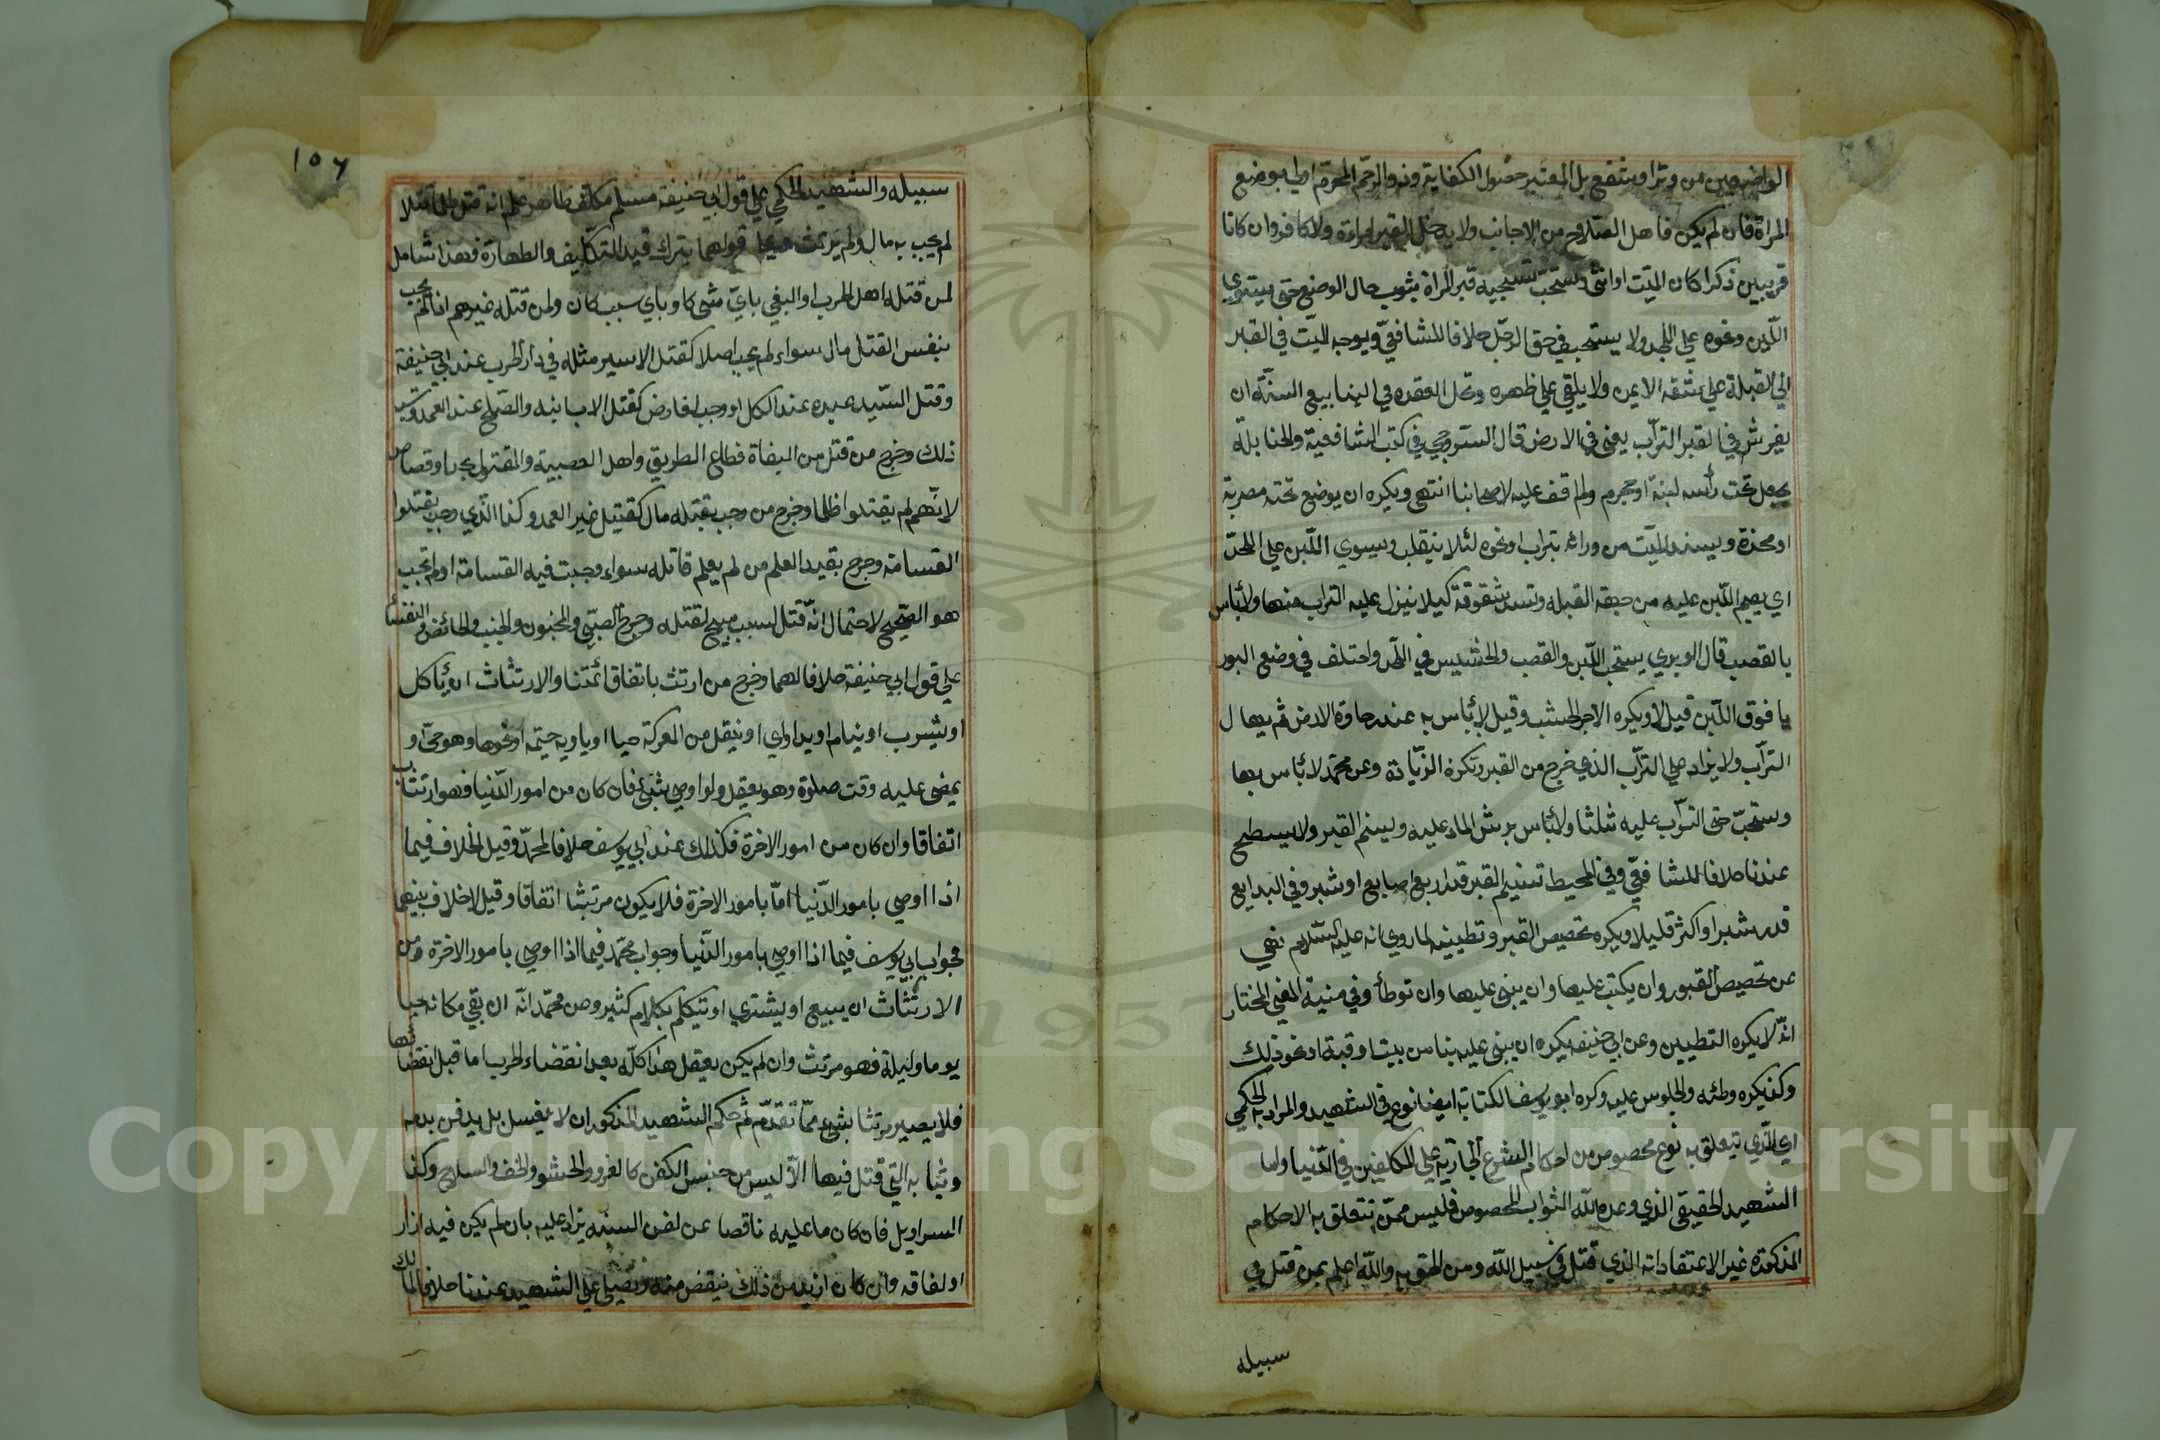 الواضعين من وتر او شفع بل المعتبر حصول الكفاية وذو الرحم المحرم اولى بوضع
المراة فان لم يكن فاهل الصلاح من الاجانب ولا يدخل القبر امراة ولا كافر وان كانا
قريبين ذكرا كان الميت او انثى ويستحب تسجية قبر المراة بثوب حال الوضع حتى يستوي
اللبن ونحوه على اللحد ولا يستحب في حق الرجل خلافا للشافعي ويوجه الميت في القبر
الي القبلة على شقه الايمن ولا يلقي على ظهره وتحل العقدة وفي الينابيع السنة ان
يفرش في القبر التراب يعني في الارض قال السروجي وفي كتب الشافعية والحنابلة
يجعل تحت رأسه لبنة او حجر ولم اقف عليه لاصحابنا انتهى ويكره ان يوضع تحته مضربة
او مخدة ويسند الميت من ورائه بتراب او نحوه لئلا ينقلب ويسوي اللبن على اللحد
اي يقيم اللبن عليه من جهة القبلة وتسد شقوقة كيلا ينزل عليه التراب منها ولا بأس
بالقصب قال الوبري يستحب اللبن والقصب والحشيش في اللحد واختلف في وضع البور
يا فوق اللبن قيل لا ويكره الاجر والخشب وقيل لا بأس به عند رخاوة الارض ثم يهال
التراب ولا يزاد على التراب الذي خرج من القبر وتكره الزيادة وعن محمد لا بأس بها
وستحب حثى التراب عليه ثلثا ولا بأس برش الماء عليه ويسنم القبر ولا يسطح
عندنا خلافا للشافعي وفي المحيط تسنيم القبر قدر اربع اصابع او شبر وفي البدايع
قدر شبر او اكثر قليلا ويكره تجصيص القبر وتطيينه لما روي انه عليه السلام نهى
عن تجصيص القبور وان يكتب عليها وان يبنى عليها وان توطأ وفي منية المفتي المختار
انه لا يكره التطيين وعن ابي حنيفة يكره ان يبنى عليه بنا من بيت او قبة او نحو ذلك
وكذ يكره وطئه والجلوس عليه وكره ابو يوسف الكتابة ايضا نوع في الشهيد والمراد به الحكمي
اي الذي يتعلق به نوع مخصوص من احكام الشرع الجارية على المكلفين في الدنيا واما
الشهيد الحقيقي الذي وعده الله الثواب المخصوص فليس ممن تتعلق به الاحكام
المذكورة غير الاعتقاد انه الذي قتل في سبيل الله ومن الحق به والله اعلم بمن قتل في
سبيله
١٥٦
سبيله والشهيد الحكمي على قول ابي حنيفة مسلم مكلف طاهر علم انه قتل ظلما قتلا
لم يجب به مال ولم يرتث وعلى قولهما بترك قيد التكليف والطهارة فهذا شامل
لمن قتله اهل الحرب او البغي باي شئ كا وباي سبب كان ولمن قتله غيرهم اذا لم يجب
بنفس القتل مال سواء لم يجب اصلا كقتل الاسير مثله في دار الحرب عند ابي حنيفة
وقتل السيد عبده عند الكل او وجب لعارض كقتل الاب ابنه والصلح عند العمد وشبه
ذلك وخرج من قتل من البغاة وقطاع الطريق واهل العصبية والمقتول بحد او قصاص
لانهم لم يقتلوا ظلما وخرج من وجب بقتله مال كقتيل غير العمد وكذا الذي وجب بقتلوا
القسامة وخرج بقيد العلم من لم يعلم قاتله سواء وجبت فيه القسامة او لم تجب
هو الصحيح لاحتمال انه قتل لسبب مبيح لقتله وخرج الصبي والمجنون والجنب والحائض والنفسأ
على قول ابي حنيفة خلافا لهما وخرج من ارتث باتفاق ائمتنا والارتثاث ان يأكل
او يشرب او ينام او يداوي او ينقل من المعركة حيا او ياويه خيمة او نحوها وهو حي او
يمضي عليه وقت صلوة وهو يعقل ولو اوصي بشئ فان كان من امور الدنيا فهو ارتثاث
اتفاقا وان كان من امور الاخرة فكذلك عند ابي يوسف خلافا لمحمد وقيل الخلاف فيما
اذا اوصي بامور الدنيا اما بامور الاخرة فلا يكون مرتثا اتفاقا وقيل لا خلاف بينهما
فجواب ابي يوسف فيما اذا اوصي بامور الدنيا وجواب محمد فيما اذا اوصي بامور الاخرة ومن
الارتثاث ان يبيع او يشتري او تيكلم بكلام كثير وعن محمد انه ان بقي مكانه حيا
يوما وليلة فهو مرتث وان لم يكن يعقل هذا كله بعد انقضاء الحرب اما قبل انقضائها
فلا يصير مرتثا بشئ مما تقدم ثم حكم الشهيد المذكور ان لا يغسل بل يدفن بدمه
وثيابه التي قتل فيها الا ليس من جنس الكفن كالفرو والحشو والخف والسلاح وكذا
السراويل فان كان ما عليه ناقصا عن كفن السنة يزاد عليه بان لم يكن فيه ازار
او لفافة وان كان ازيد من ذلك ينقص منه ويصلي على الشهيد عندنا خلافا لمالك
Copyright © King Saud University
1957